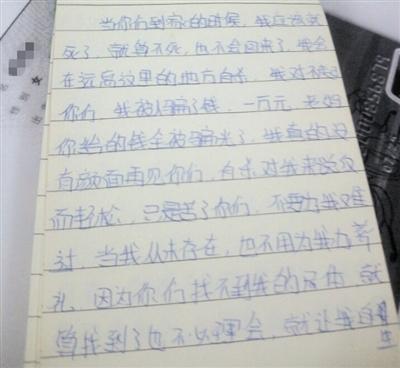 当你们到家的时候,我应该就
死了,就算不死,也不会回来了,我会
在远离这里的地方自杀,我对不起
你们,我被人骗了钱,一万元,老妈
你给的钱全被骗光了,我真的没
有颜面再见你们,自杀对我来说
而轻松,只是苦了你们,不要为我难
过,当我从未存在,也不用为我办葬
礼,因为你们找不到我的尸体,就
算找到了也不必理会,就让我自生